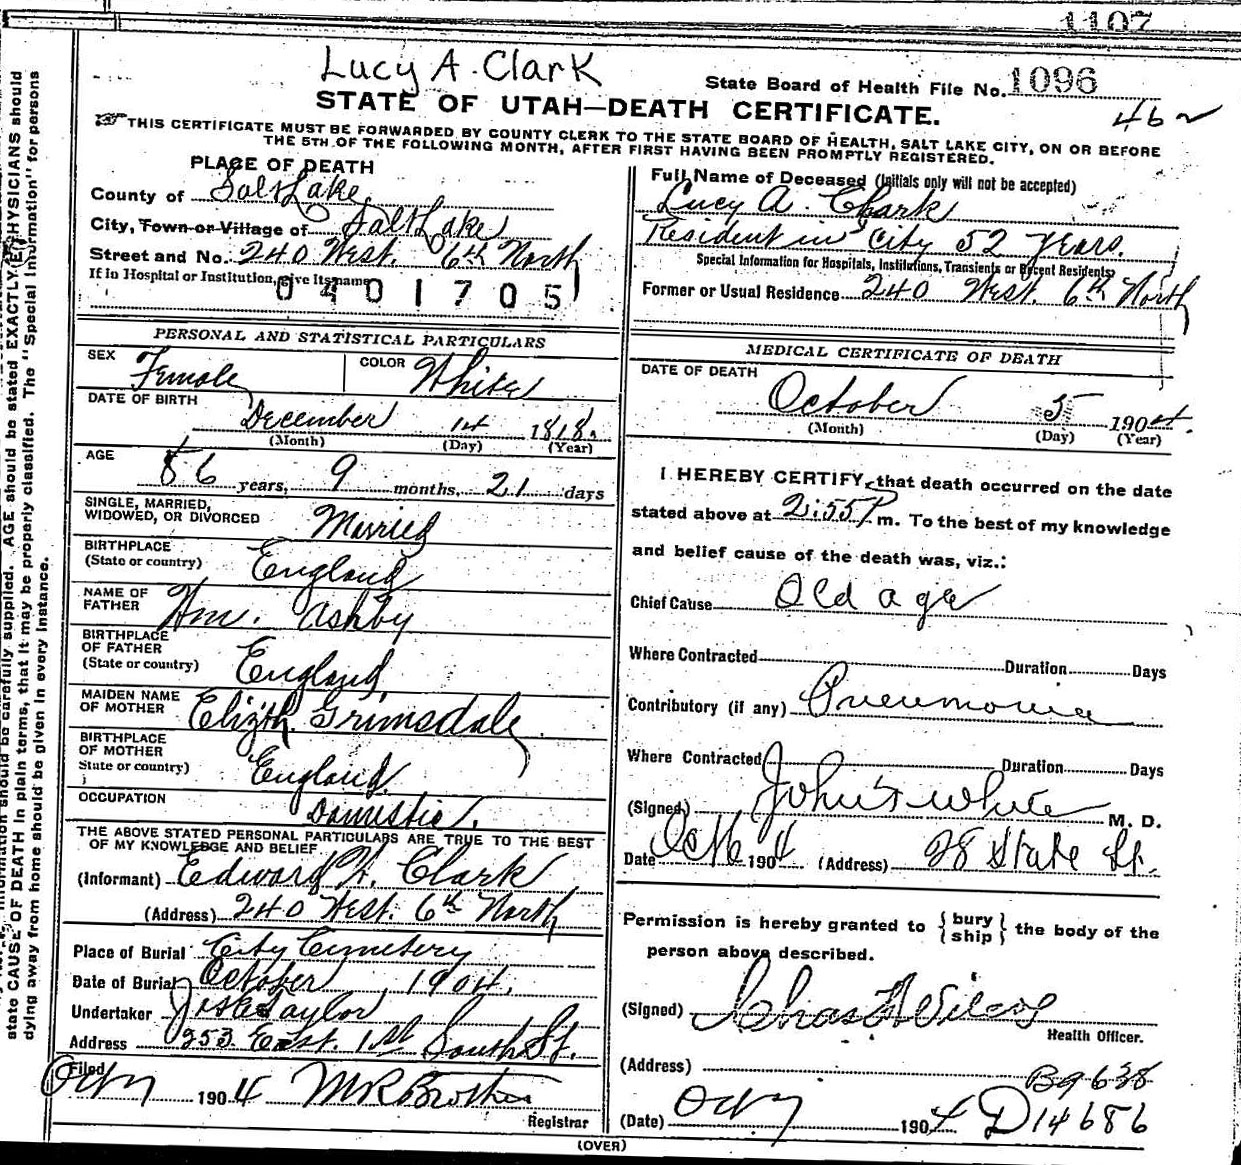 1107
Lucy A. Clark
State Board of Health File No. 1096
STATE OF UTAH—DEATH CERTIFICATE.
46
THIS CERTIFICATE MUST BE FORWARDED BY COUNTY CLERK TO THE STATE BOARD OF HEALTH, SALT LAKE CITY, ON OR BEFORE
THE 5TH OF THE FOLLOWING MONTH, AFTER FIRST HAVING BEEN PROMPTLY REGISTERED.
PLACE OF DEATH
County of Salt Lake
City, Town or Village of Salt Lake
Street and No. 240 West. 6th North
If in Hospital or Institution, give its name
0401705
Full Name of Deceased (Initials only will not be accepted)
Lucy A. Clark
Resident in City 52 Years.
Special Information for Hospitals, Institutions, Transients or Recent Residents:
Former or Usual Residence 240 West. 6th North
PERSONAL AND STATISTICAL PARTICULARS
SEX Female COLOR White
DATE OF BIRTH
December 14 1818.
(Month) (Day) (Year)
AGE
86 years, 9 months, 21 days
SINGLE, MARRIED,
WIDOWED, OR DIVORCED Married
BIRTHPLACE
(State or country) England
NAME OF
FATHER Wm. Ashby
BIRTHPLACE
OF FATHER
(State or country) England
MAIDEN NAME
OF MOTHER Elizth. Grimsdale
BIRTHPLACE
OF MOTHER
State or country) England
OCCUPATION Domestic
THE ABOVE STATED PERSONAL PARTICULARS ARE TRUE TO THE BEST
OF MY KNOWLEDGE AND BELIEF
(Informant) Edward W. Clark
(Address) 240 West. 6th North
Place of Burial City Cemetery
Date of Burial October, 1904.
Undertaker Jos E Taylor
Address 253 East. 1st South St.
Filed Oct 7 1904 M R Brothers
Registrar
MEDICAL CERTIFICATE OF DEATH
DATE OF DEATH
October 5 1904.
(Month) (Day) (Year)
I HEREBY CERTIFY, that death occurred on the date
stated above at 2:55 P m. To the best of my knowledge
and belief cause of the death was, viz.:
Chief Cause Old age
Where Contracted Duration Days
Contributory (if any) Pneumonia
Where Contracted Duration Days
(Signed) John S White M. D.
Date Oct 6 1904 (Address) 28 State St.
Permission is hereby granted to { bury ship } the body of the
person above described.
(Signed) Chas F Wilcox
Health Officer.
(Address)
B9638
(Date) Oct 7 1904 D14686
(OVER)
information should be carefully supplied. AGE should be stated EXACTLY. PHYSICIANS should
state CAUSE OF DEATH in plain terms, that it may be properly classified. The "Special Information" for persons
dying away from home should be given in every instance.